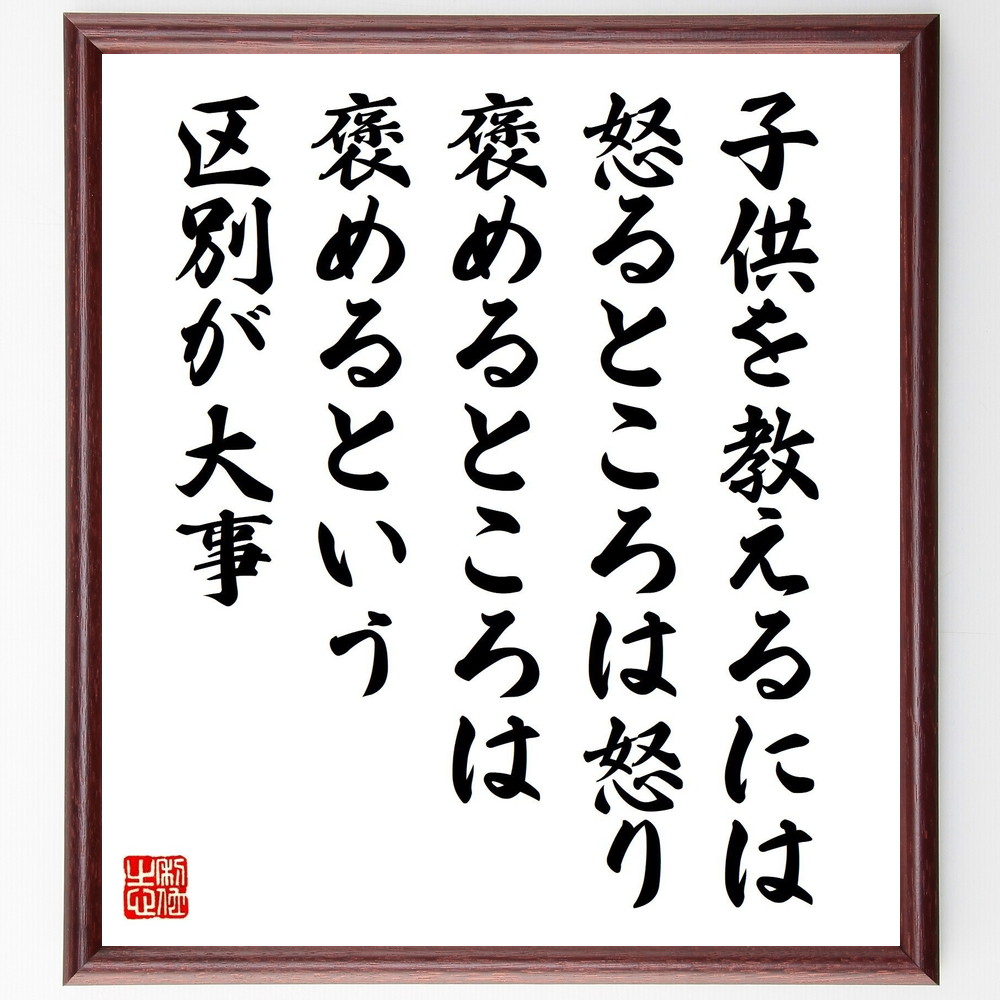 子供を教えるには
怒るところは怒り
褒めるところは
褒めるという
区別が大事